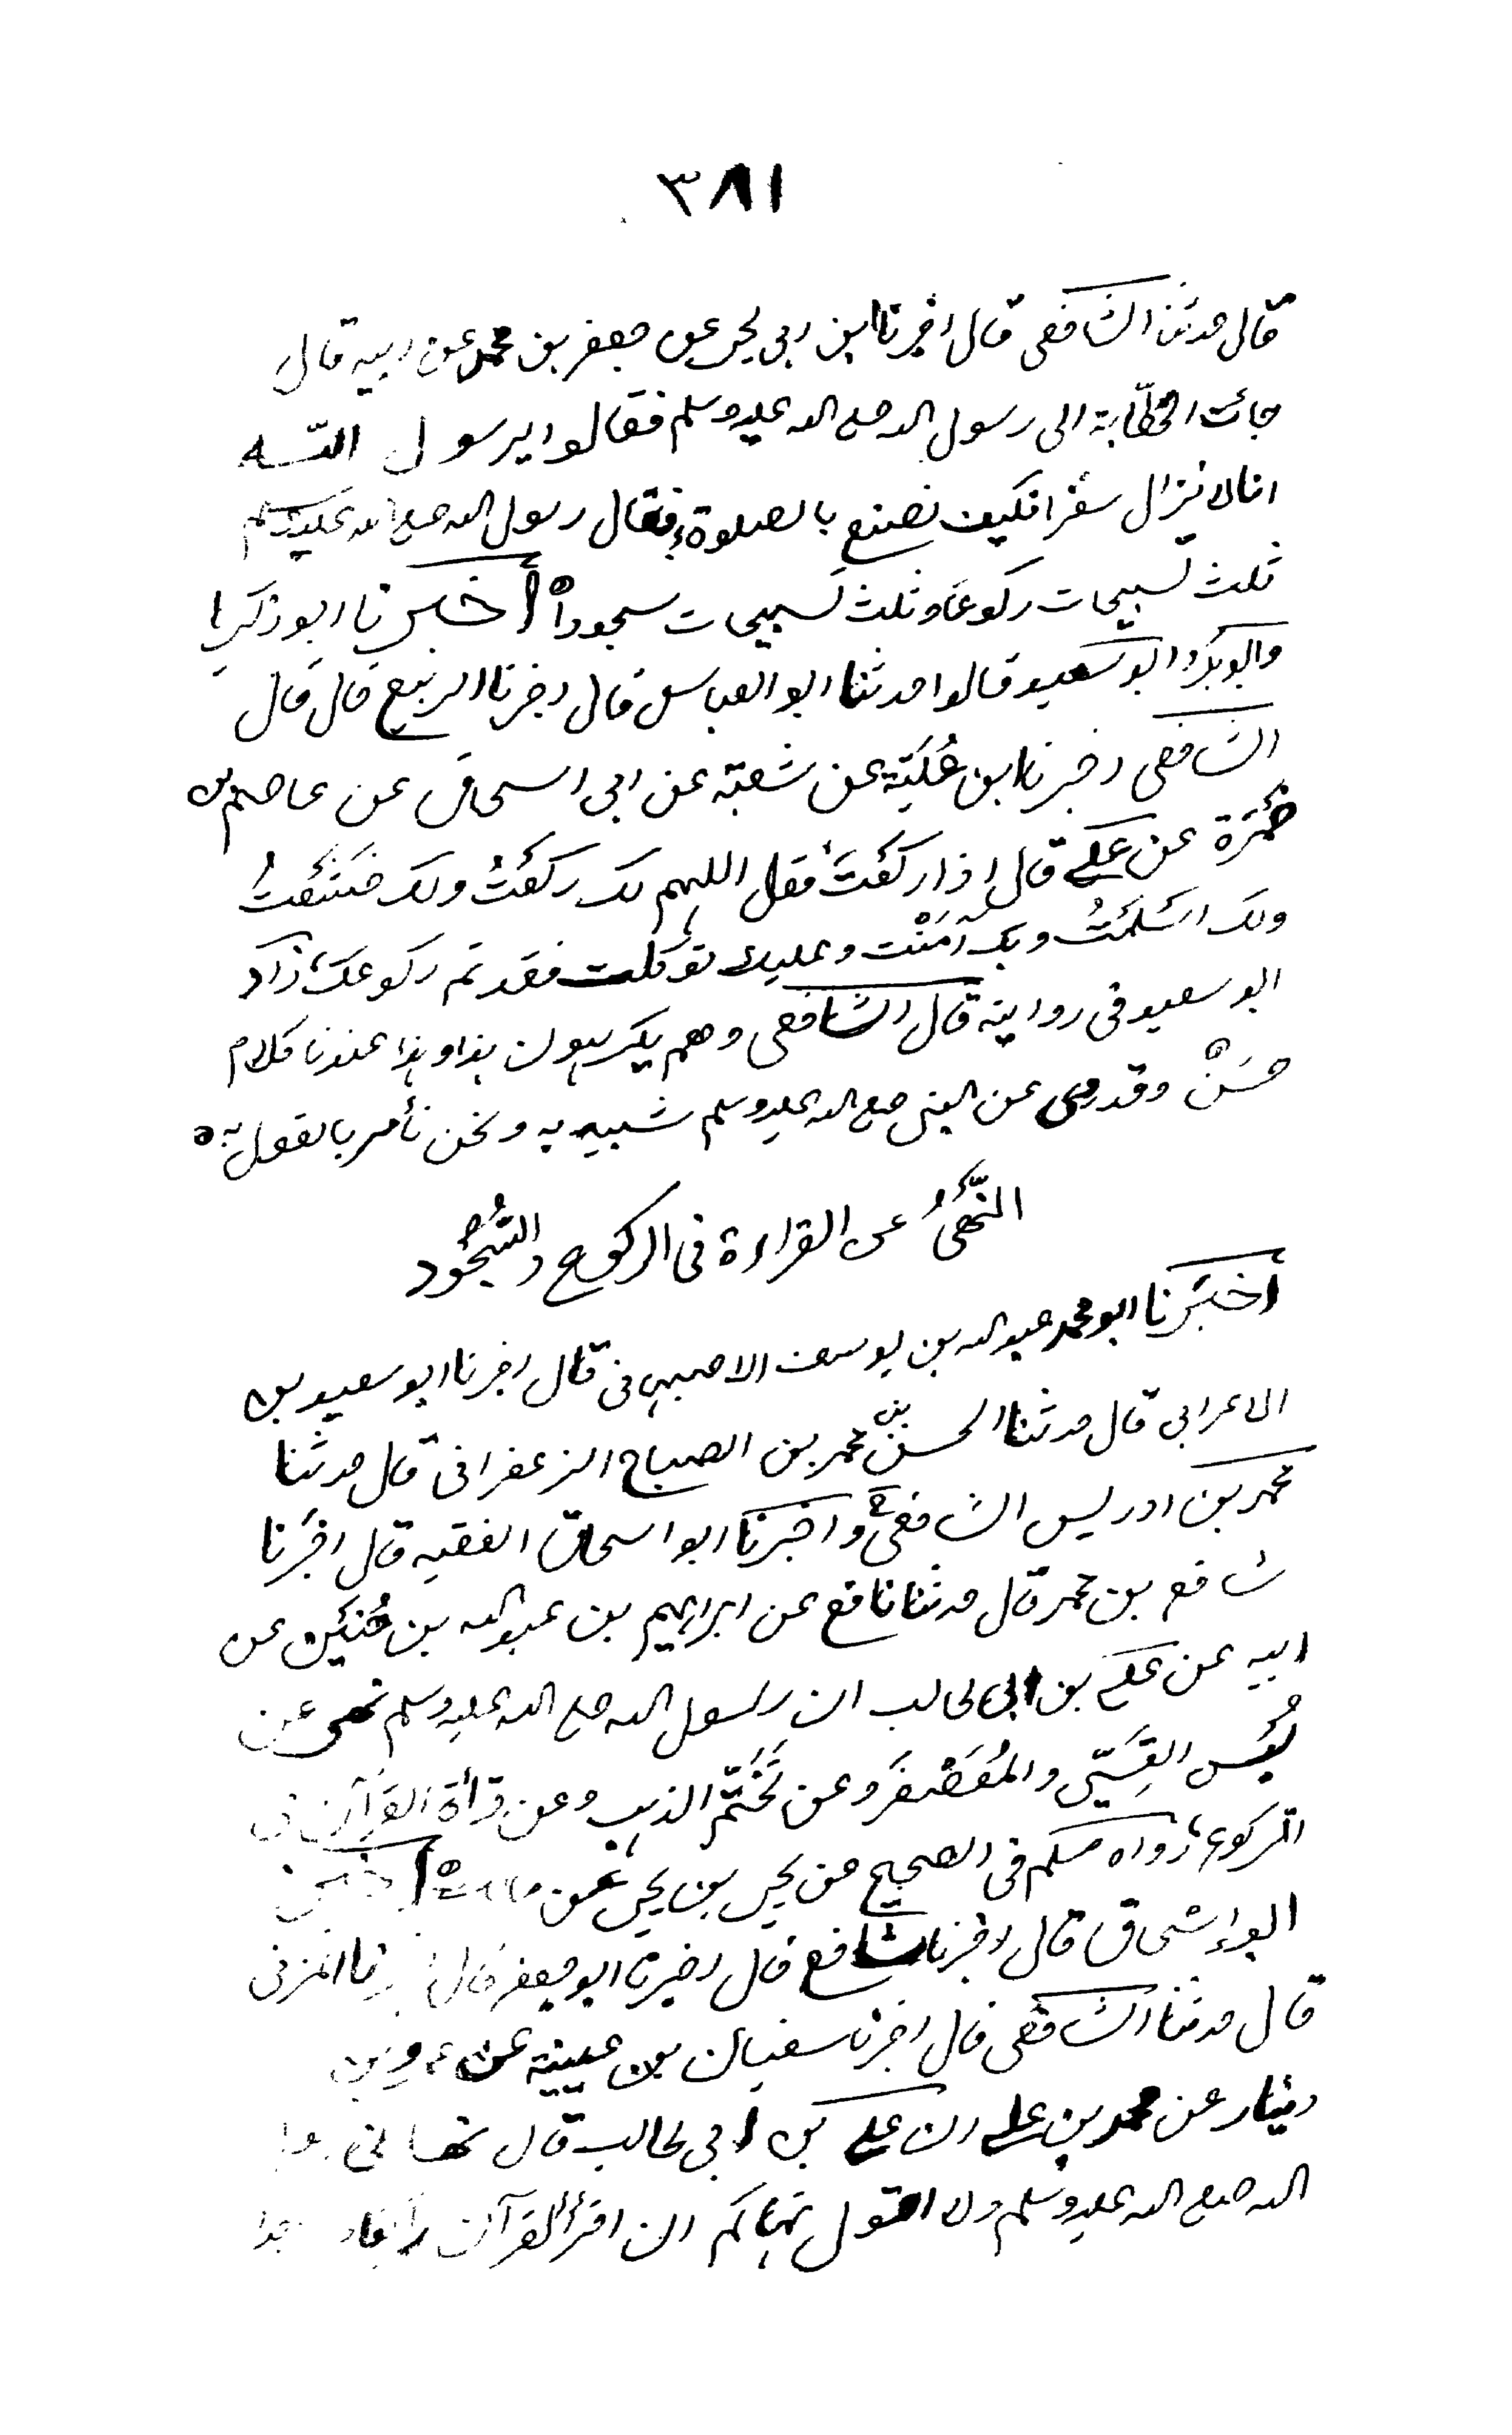 ٣٨١
قال حدثنا الشافعى قال اخبرنا ابن ابى يحيى عن جعفر بن محمد عن ابيه قال
جائت الحطّابة الى رسول الله صلى الله عليه وسلم فقالوا يرسول الله
انا لا نزال سفرا فكيف نصنع بالصلوة فقال رسول الله صلى الله عليه وسلم
ثلث تسبيحات ركوعًا وثلث تسبيحات سجوداً ه أخبرنا ابو زكريا
وابو بكر وابو سعيد قالوا حدثنا ابو العباس قال اخبرنا الربيع قال قال
الشافعى اخبرنا ابن عُليّة عن شعبة عن ابى اسحاق عن عاصم بن
ضَمْرَة عن على قال اذا ركعْتَ فقل اللهم لك ركعْتُ ولك خَشَعْتُ
ولك اَسْلَمْتُ وبك آمَنْت وعليك توكلت فقد تم ركوعك زاد
ابو سعيد فى روايته قال الشافعى وهم يكرهون هذا وهذا عندنا كلام
حسَنْ وقد روى عن النبى صلى الله عليه وسلم شبيه به ونحن نأمر بالقول به ه
النَّهْىُ عن القراءة فى الركوع والسُّجُود
أخبَرنا ابو محمد عبد الله بن يوسف الاصبهانى قال اخبرنا ابو سعيد بن
الاعرابى قال حدثنا الحسن بن محمد بن الصباح الزعفرانى قال حدثنا
محمد بن ادريس الشافعى ح واخبرنا ابو اسحاق الفقيه قال اخبَرنا
شافع بن محمد قال حدثنا نافع عن ابراهيم بن عبد الله بن حُنَين عن
ابيه عن على بن ابى طالب ان رسول الله صلى الله عليه وسلم نهى عن
لُبْس القِسِّى والمُعَصْفَر وعن تَخَتّم الذهب وعن قرأة القرآن فى
الركوع رواه مسلم فى الصحيح عن يحيى بن يحيى عن ه أخبرنا
ابو إسحاق قال اخبرنا شافع قال اخبرنا ابو جعفر قال اخبرنا المزنى
قال حدثنا الشافعى قال اخبرنا سفيان بن عيينة عن عمرو بن
دينار عن محمد بن على ان على بن ابى طالب قال نهانى
الله صلى الله عليه وسلم ولا اقول نهاكم ان اقرأ القرآن راكعا